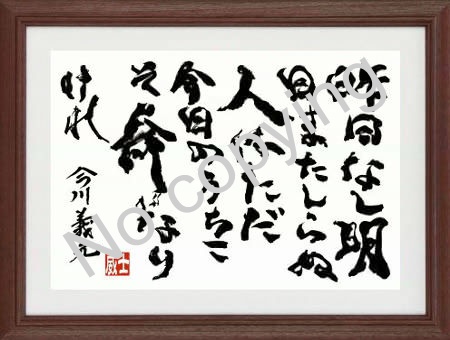 昨日なし明
日またしらぬ
人はただ
今日のうちこ
そ命なり
けれ
今川義元
No copying